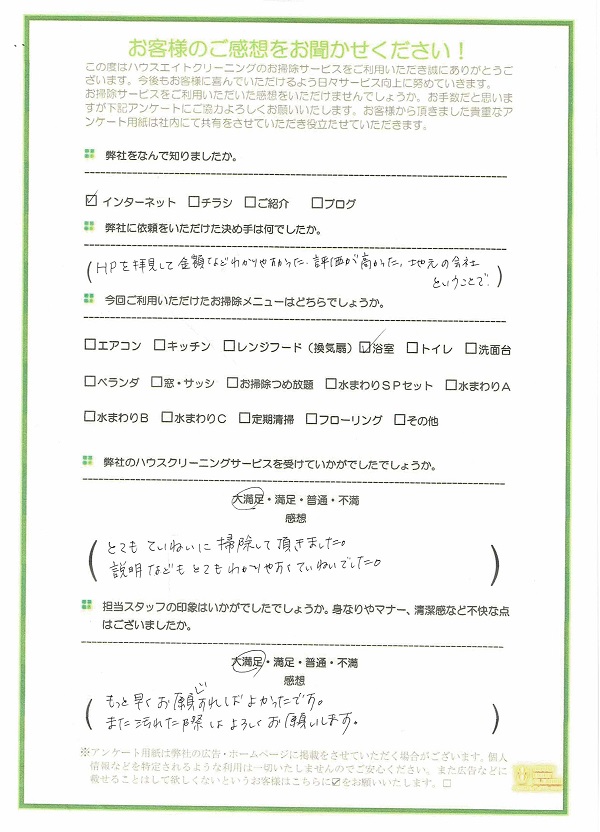 お客様のご感想をお聞かせください！
この度はハウスエイトクリーニングのお掃除サービスをご利用いただき誠にありがとうご
ざいます。今後もお客様に喜んでいただけるよう日々サービス向上に努めていきます。
お掃除サービスをご利用いただいた感想をいただけませんでしょうか。お手数だと思いま
すが下記アンケートにご協力よろしくお願いいたします。お客様から頂きました貴重なア
ンケート用紙は社内にて共有をさせていただき役立たせていただきます。
弊社をなんで知りましたか。
☑インターネット □チラシ □ご紹介 □ブログ
弊社に依頼をいただけた決め手は何でしたか。
(HPを拝見して金額などわかりやすかった、評価が高かった、地元の会社
ということで。)
今回ご利用いただけたお掃除メニューはどちらでしょうか。
□エアコン □キッチン □レンジフード（換気扇） ☑浴室 □トイレ □洗面台
□ベランダ □窓・サッシ □お掃除つめ放題 □水まわりＳＰセット □水まわりＡ
□水まわりＢ □水まわりＣ □定期清掃 □フローリング □その他
弊社のハウスクリーニングサービスを受けていかがでしたでしょうか。
大満足・満足・普通・不満
感想
(とてもていねいに掃除して頂きました。
説明などもとてもわかりやすくていねいでした。)
担当スタッフの印象はいかがでしたでしょうか。身なりやマナー、清潔感など不快な点
はございましたか。
大満足・満足・普通・不満
感想
(もっと早くお願いすればよかったです。
また汚れた際はよろしくお願いします。)
※アンケート用紙は弊社の広告・ホームページに掲載をさせていただく場合がございます。個人
情報などを特定されるような利用は一切いたしませんのでご安心ください、また広告などに
載せることはして欲しくないというお客様はこちらに☑をお願いいたします。□